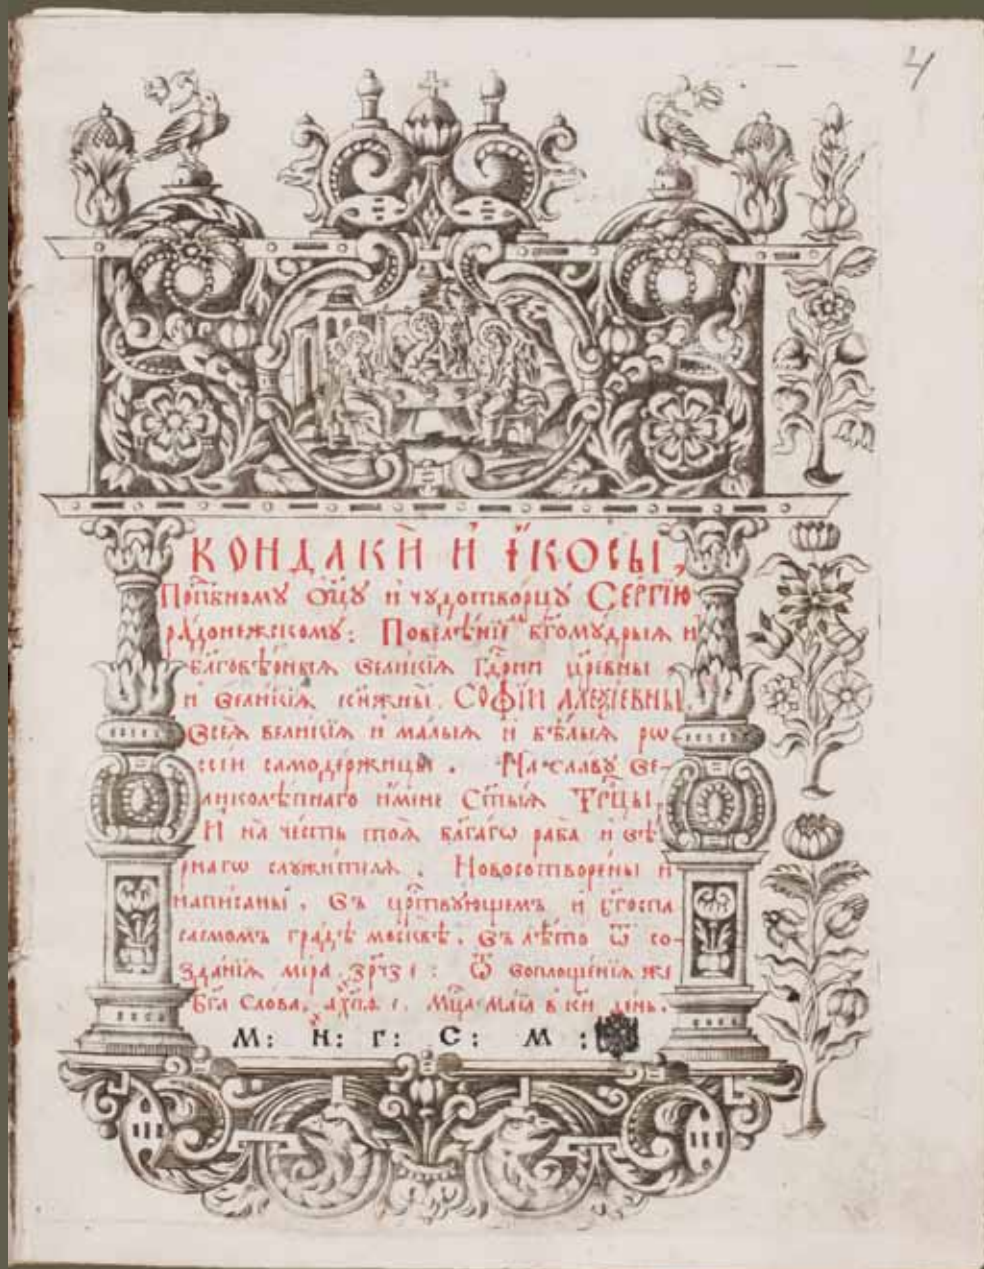 4
КОНДАКИ И ІКОСЫ,
Прпⷣбному ѻц҃у и чудотворцу СЕРГІЮ
радонежскому: Повелѣніемъ бг҃омудрыя и
благовѣрныя великія гдⷭ҇рни црⷭ҇евны
и великія княжны. СОФІИ АЛЕѮІЕВНЫ
всея великія и малыя и бѣлыя рѡ
ссіи самодержицы. На славу ве-
ликолѣпнаго имене Ст҃ыя Трⷪ҇цы,
И на честь тоя бл҃гагѡ раба и вѣ
рнагѡ служителя. Новосотворены и
написаны. въ црⷭ҇твующемъ и бг҃оспа
саемомъ градѣ москвѣ. въ лѣто ѿ со-
зданія міра ,зрч҃з е: Ѿ воплощенія же
Бг҃а Слова, ,ахп҃ѳ е. Мцⷭ҇а Маіа в ки день.
М: Н: Г: С: М: